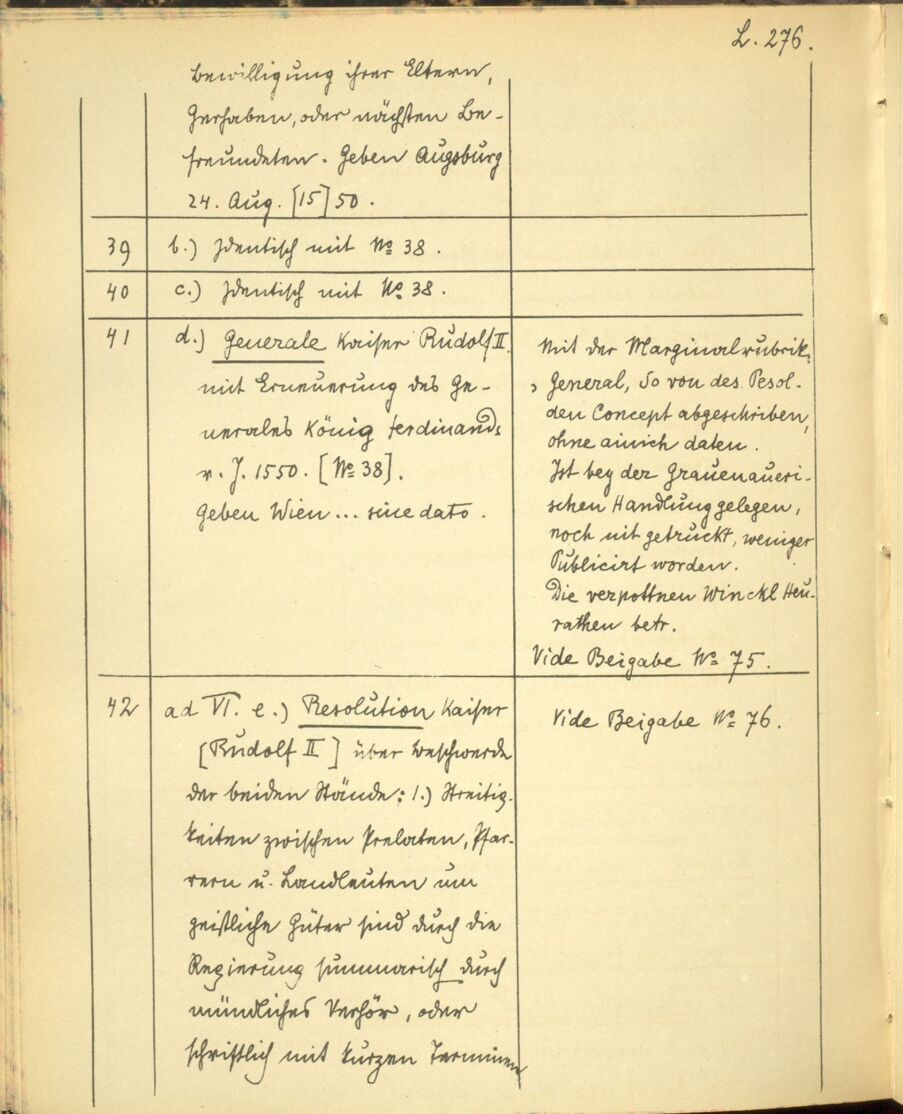 L. 276.
Bewilligung ihrer Eltern,
Gerhaben, oder nächsten Be-
freundeten. Geben Augsburg
24. Aug. [15]50.
39 b.) Identisch mit No 38.
40 c.) Identisch mit No 38.
41 d.) Generale Kaiser Rudolf II.
mit Erneuerung des Ge-
nerales König Ferdinands
v. J. 1550. [No 38].
Geben Wien... sine dato.
Mit der Marginalrubrik:
„General, So von des Pesol-
den Concept abgeschriben,
ohne ainich daten.
Ist bey der Grauenaueri-
schen Handlung gelegen,
noch nit getruckt, weniger
Publicirt worden.
Die verpottnen Winckl Heu-
rathen betr.
Vide Beigabe No 75.
42 ad VI. e.) Resolution Kaiser
[Rudolf II] über Beschwerde
der beiden Stände: 1.) Streitig-
keiten zwischen Prelaten, Pfar-
rern u. Landleuten um
geistliche Güter sind durch die
Regierung summarisch durch
mündliches Verhör, oder
schriftlich mit kurzen Terminen
Vide Beigabe No 76.